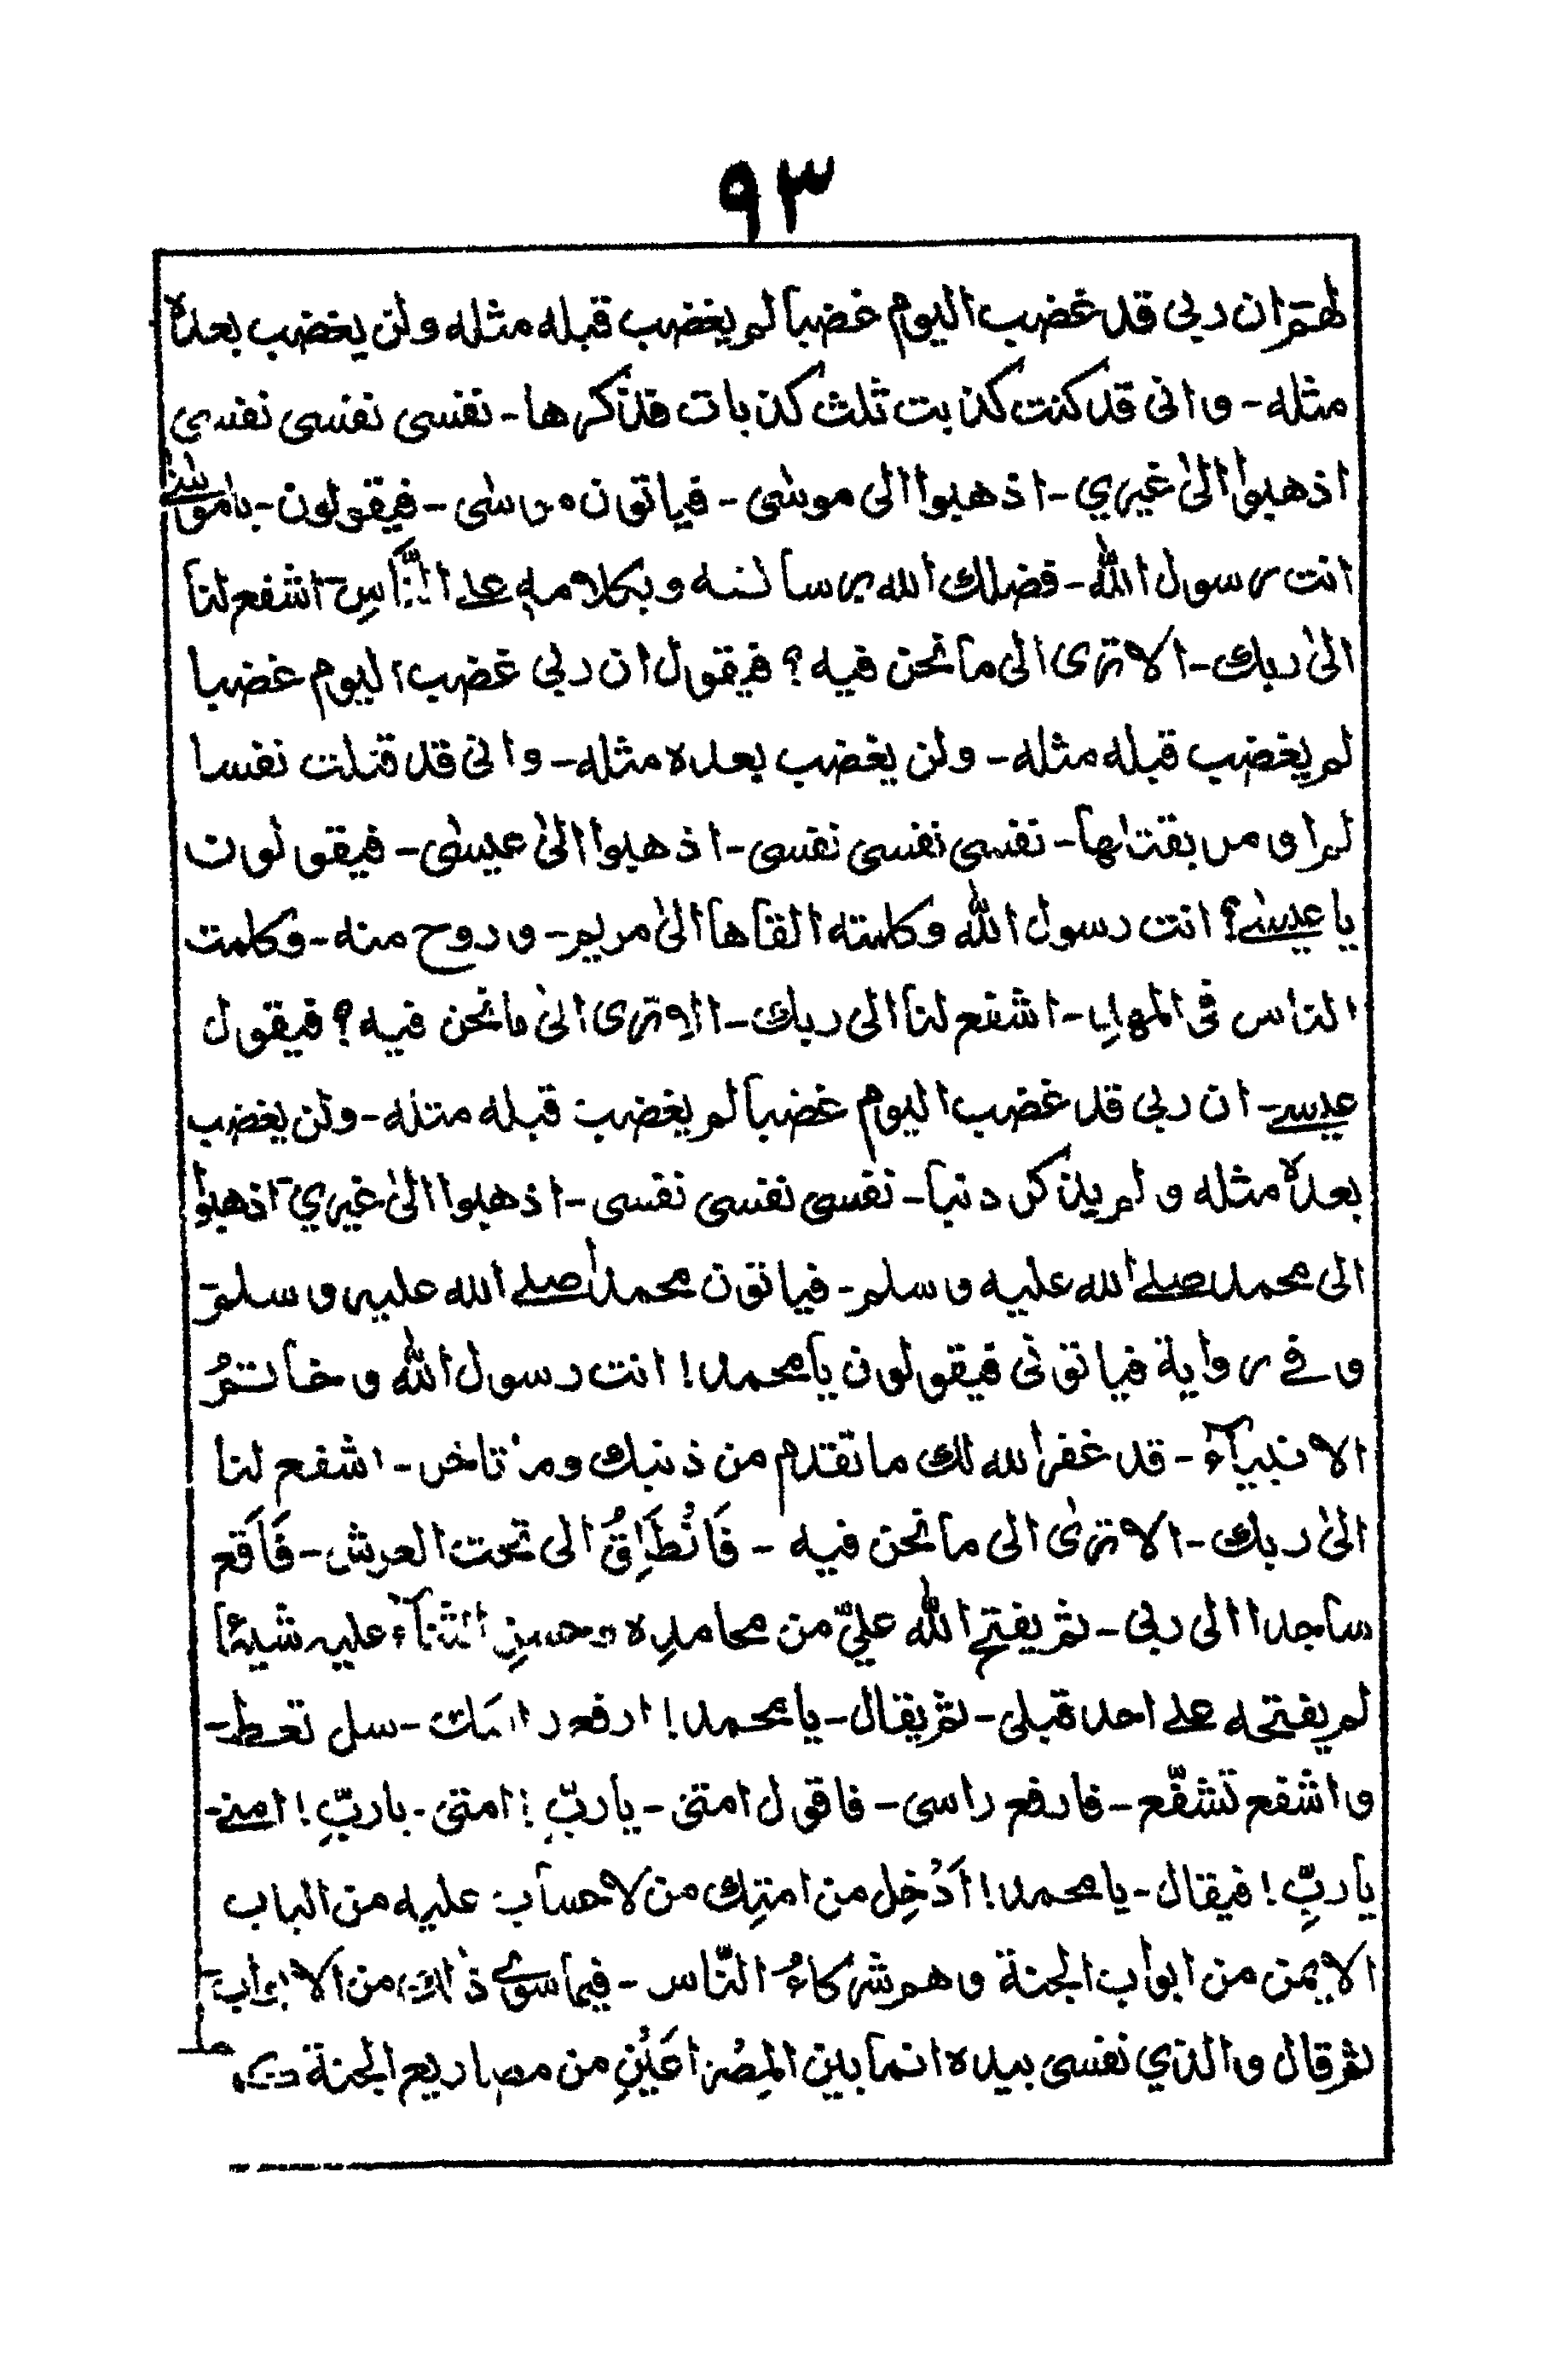 ٩٣
لهم ان ربی قد غضب الیوم غضبا لم یغضب قبله مثله ولن یغضب بعدہ
مثله - وانی قد کنت کذبت ثلث کذبات فذکرها - نفسی نفسی نفسی
اذهبوا الیٰ غیری - اذهبوا الی موسٰی - فیاتون موسٰی - فیقولون - یا موسٰے
انت رسول اللّٰه - فضلک الله برسالته وبکلامهٖ علے النَّاسِ - اشفع لنا
الیٰ ربک - الا تری الی ما نحن فیه؟ فیقول ان ربی غضب الیوم غضبا
لم یغضب قبله مثله - ولن یغضب بعده مثله - وانی قد قتلت نفسا
لم اومر بقتلها - نفسی نفسی نفسی - اذهبوا الیٰ عیسٰی - فیقولون
یا عیسٰے؟ انت رسول اللّٰه وکلمته القاها الیٰ مریم - وروح منه - وکلمت
الناس فی المهدِ - اشفع لنا الی ربک - الا تری الیٰ ما نحن فیه؟ فیقول
عیسے - ان ربی قد غضب الیوم غضبا لم یغضب قبله مثله - ولن یغضب
بعدہٗ مثله ولم یذکر ذنبا - نفسی نفسی نفسی - اذهبوا الیٰ غیری - اذهبوا
الی محمد صلے الله علیه وسلم - فیاتون محمداً صلے الله علیہ وسلم -
وفے روایة فیاتونی فیقولون یا محمد! انت رسول اللّٰه وخاتمُ
الانبیآء - قد غفر الله لک ما تقدم من ذنبک وما تاخر - اشفع لنا
الیٰ ربک - الا ترٰی الی ما نحن فیه - فَانْطَلِقُ الی تحت العرش - فَاَقع
ساجدا الی ربی - ثم یفتح اللّٰه علیّ من محامدِه وحسنِ الثنآء علیہ شیئا
لم یفتحه علے احد قبلی - ثم یقال - یا محمد! ارفع راسک - سل تعط -
واشفع تشفّع - فارفع راسی - فاقول امتی - یا ربِّ! امتی - یا ربِّ! امتے -
یا ربِّ! فیقال - یا محمد! اَدْخِل من امتِک من لا حساب علیه من الباب
الایمن من ابواب الجنة وهم شرکاءُ النّاس - فیما سوٰے ذٰلک من الابواب -
ثم قال والذی نفسی بیده انما بین المِصْراعَیْنِ من مصاریع الجنة